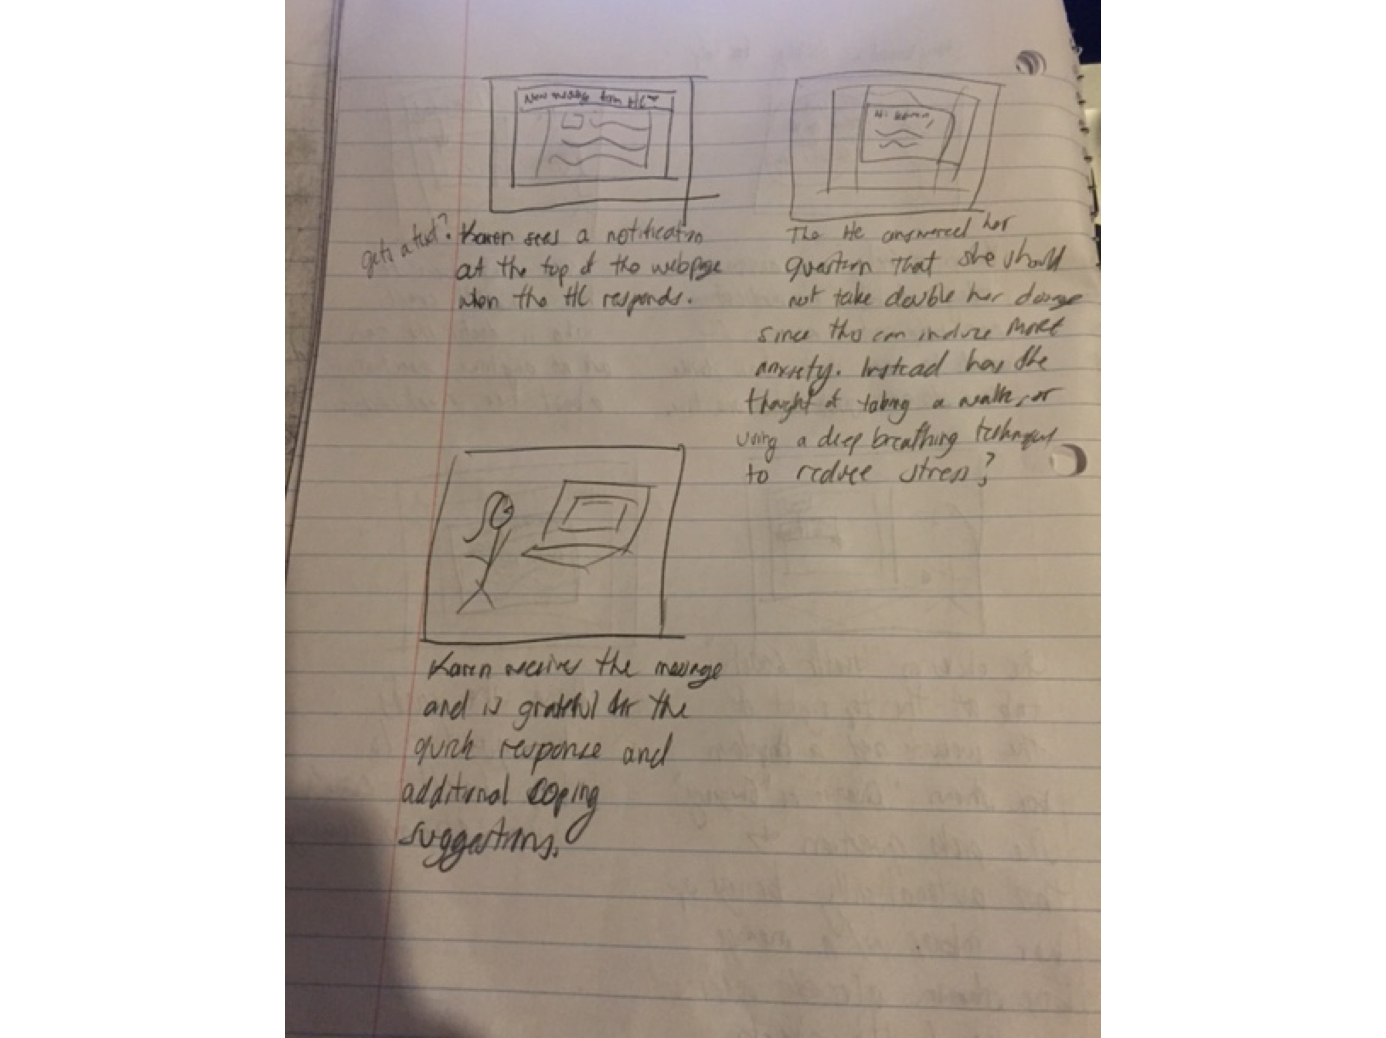 New message from HC
Hi Karen,
gets a text?
Karen sees a notification
at the top of the webpage
when the HC responds.
The HC answered her
question that she should
not take double her dosage
since this can induce more
anxiety. Instead has she
thought of taking a walk, or
using a deep breathing technique
to reduce stress?
Karen receives the message
and is grateful for the
quick response and
additional coping
suggestions.